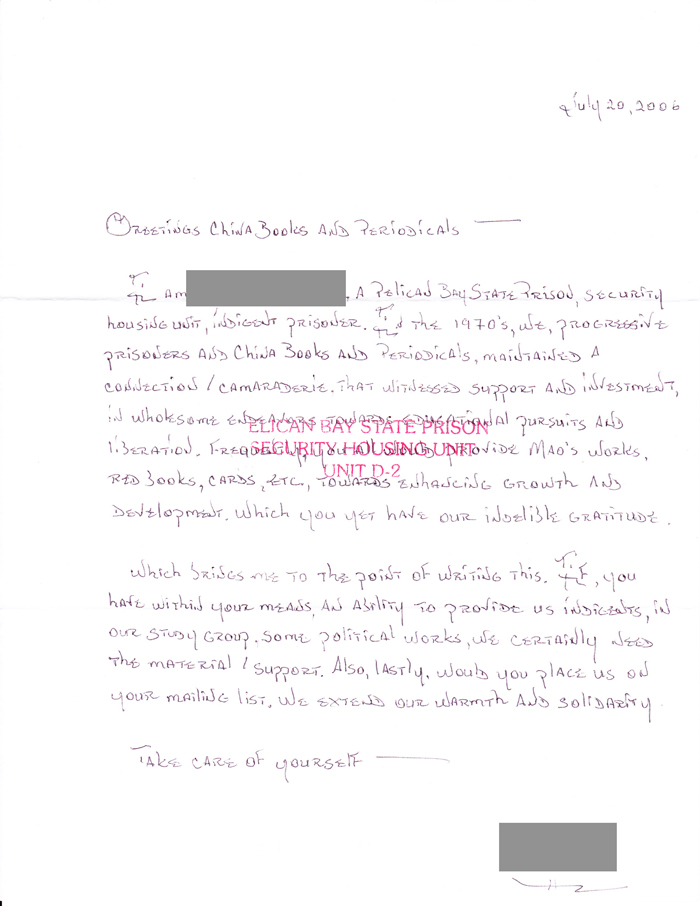 July 20, 2006
Greetings China Books and Periodicals —
I am
, a Pelican Bay State Prison, security
housing unit, indigent prisoner. In the 1970's, we, progressive
prisoners and China Books and Periodicals, maintained a
connection / camaraderie. That witnessed support and investment,
in wholesome endeavors towards educational pursuits and
liberation. Frequently, you would provide Mao's works,
Red Books, cards, etc., towards enhancing growth and
development. Which you yet have our indelible gratitude.
ELICAN BAY STATE PRISON
SECURITY HOUSING UNIT
UNIT D-2
Which brings me to the point of writing this. If, you
have within your means, an ability to provide us indigents, in
our study group. Some political works, we certainly need
the material / support. Also, lastly. Would you place us on
your mailing list, we extend our warmth and solidarity.
Take care of yourself —